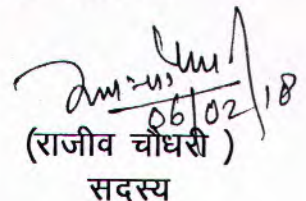 06/02/18
(राजीव चौधरी )
सदस्य